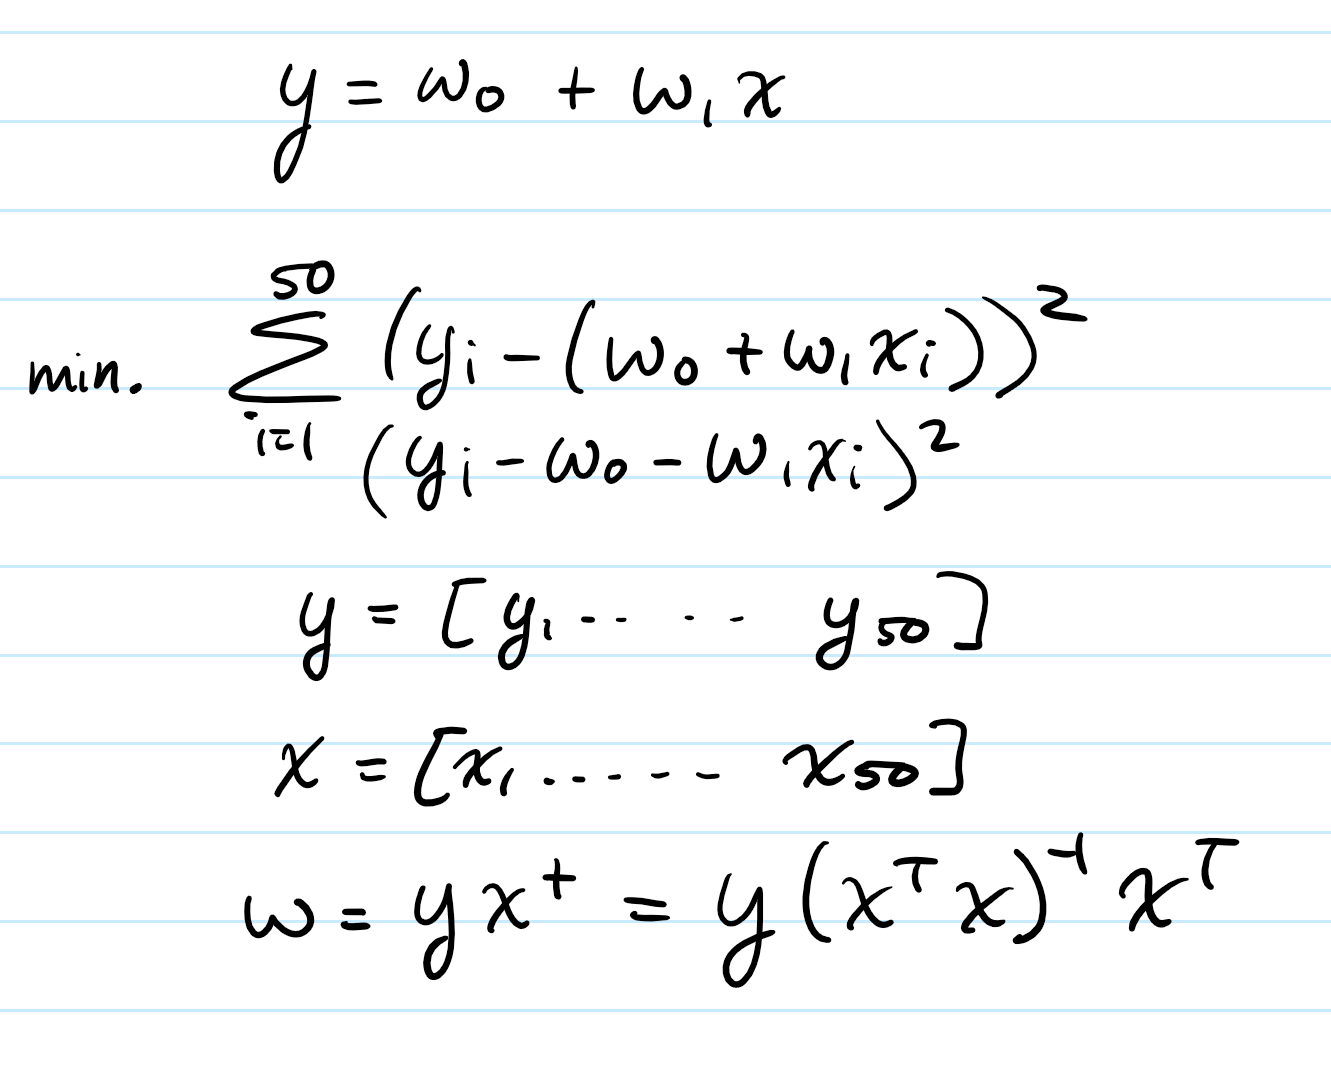 y = w₀ + w₁x
min. ∑ᵢ₌₁⁵⁰ (yᵢ - (w₀ + w₁xᵢ))²
(yᵢ - w₀ - w₁xᵢ)²
y = [y₁ -- -- y₅₀]
x = [x₁ ----- x₅₀]
w = yx⁺ = y(xᵀx)⁻¹xᵀ